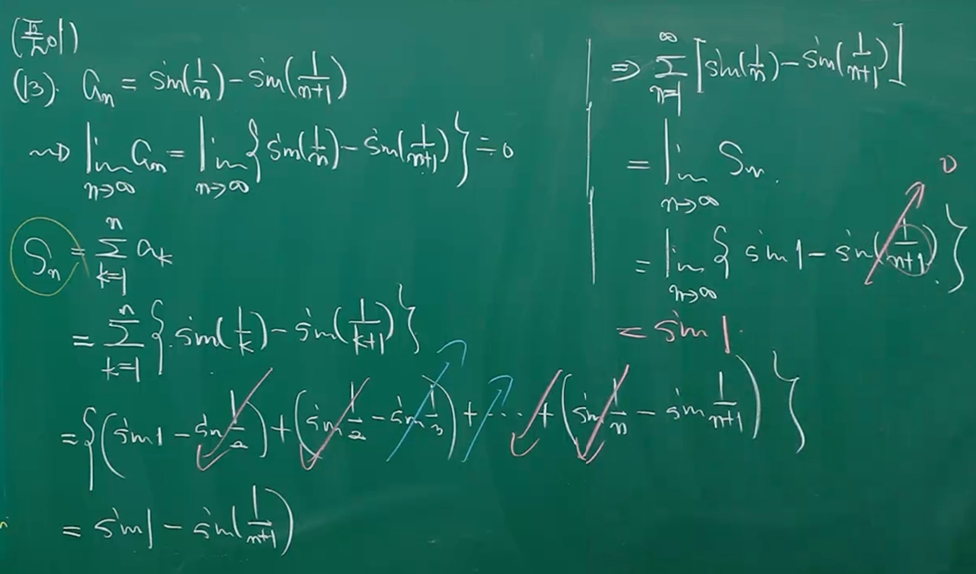 (풀이)
(13). aₙ = sin(1/n) - sin(1/(n+1))
⇝ lim_{n→∞} aₙ = lim_{n→∞} { sin(1/n) - sin(1/(n+1)) } = 0
Sₙ = ∑_{k=1}^{n} aₖ
= ∑_{k=1}^{n} { sin(1/k) - sin(1/(k+1)) }
= { (sin1 - sin 1/2) + (sin 1/2 - sin 1/3) + ⋯ + (sin 1/n - sin 1/(n+1)) }
= sin1 - sin(1/(n+1))
⇒ ∑_{n=1}^{∞} [ sin(1/n) - sin(1/(n+1)) ]
= lim_{n→∞} Sₙ.
= lim_{n→∞} { sin1 - sin(1/(n+1)) } 0
= sin1.